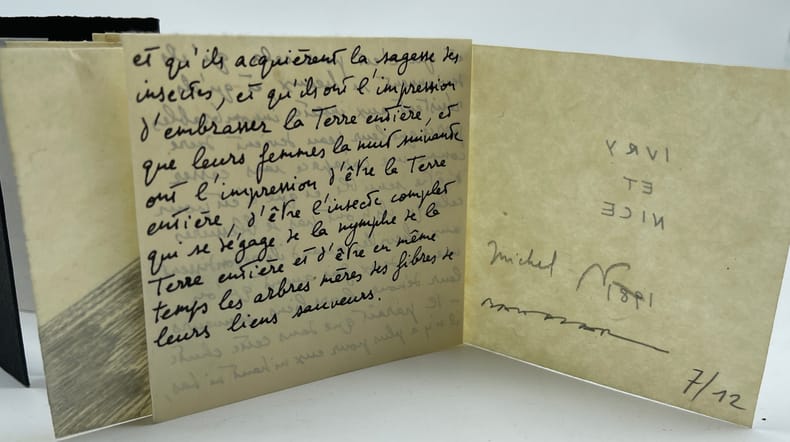 et qu'ils acquièrent la sagesse des
insectes, et qu'ils ont l'impression
d'embrasser la Terre entière, et
que leurs femmes la nuit suivante
ont l'impression d'être la Terre
entière, d'être l'insecte complet
qui se dégage de la nymphe de la
Terre entière et d'être en même
temps les arbres mères des fibres de
leurs liens sauveurs.
IVRY
ET
NICE
Michel
1981
7/12